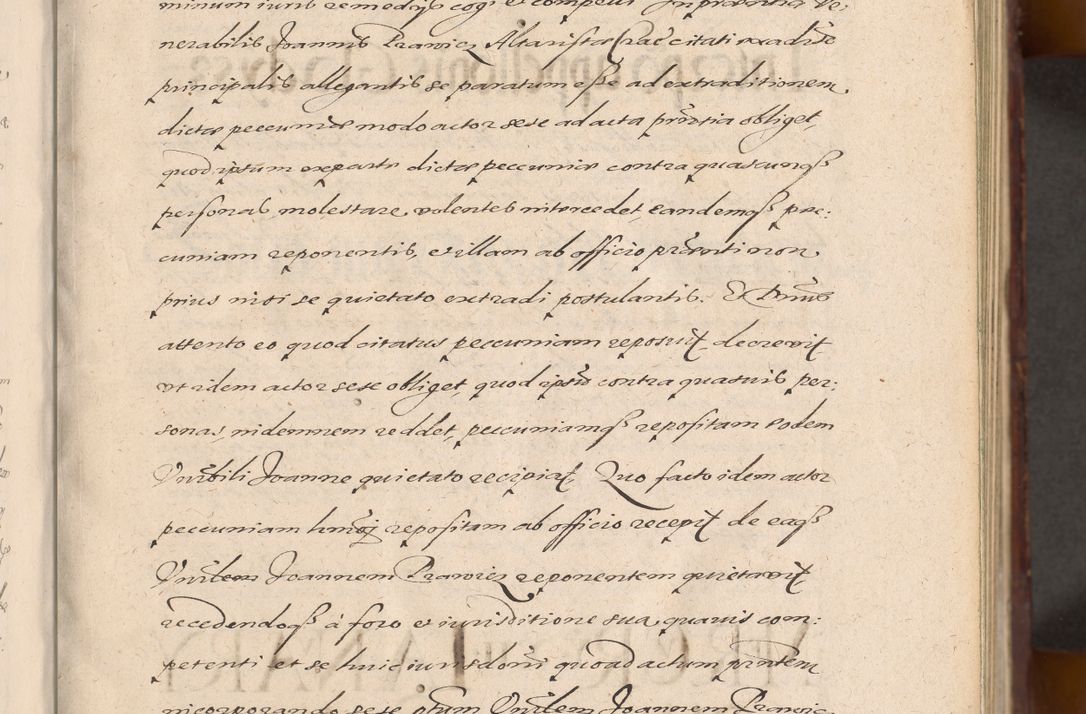 minum iuris remedijs cogi et compelli In presentia Ve:
nerabilis Joannis Prawicz Altaristæ Præ citati ex adiuso
principalis allegantis se paratum esse ad extraditionem
dictæ peccuniæ modo actor sese ad acta pñtia obliget,
quod ipsum ex parte dictæ peccuniæ contra quascunqȝ
personas molestare volentes intercedet, eandemqȝ pec:
cuniam reponentis, et illam ab officio præsenti non
prius nisi se quietato extradi postulantis. Et Dñus
attento eo quod citatus peccuniam reposuit, decrevit
ut idem actor sese obliget, quod ipsũ contra quasuis per:
sonas, indemnem reddet, peccuniamqȝ repositam eodem
Vnrabili Joanne quietato recipiat. Quo facto idem actor
peccuniam hmõi repositam ab officio recepit de eaqȝ
Vnrãblem Joannem Prawicz reponentem quietavit
recedendoqȝ à foro et iurisditione sua quavis com:
petenti et se huic iurisdoni quoad actum pñtem
incorporando sese ptum Vnrãblem Joannem Prawicz